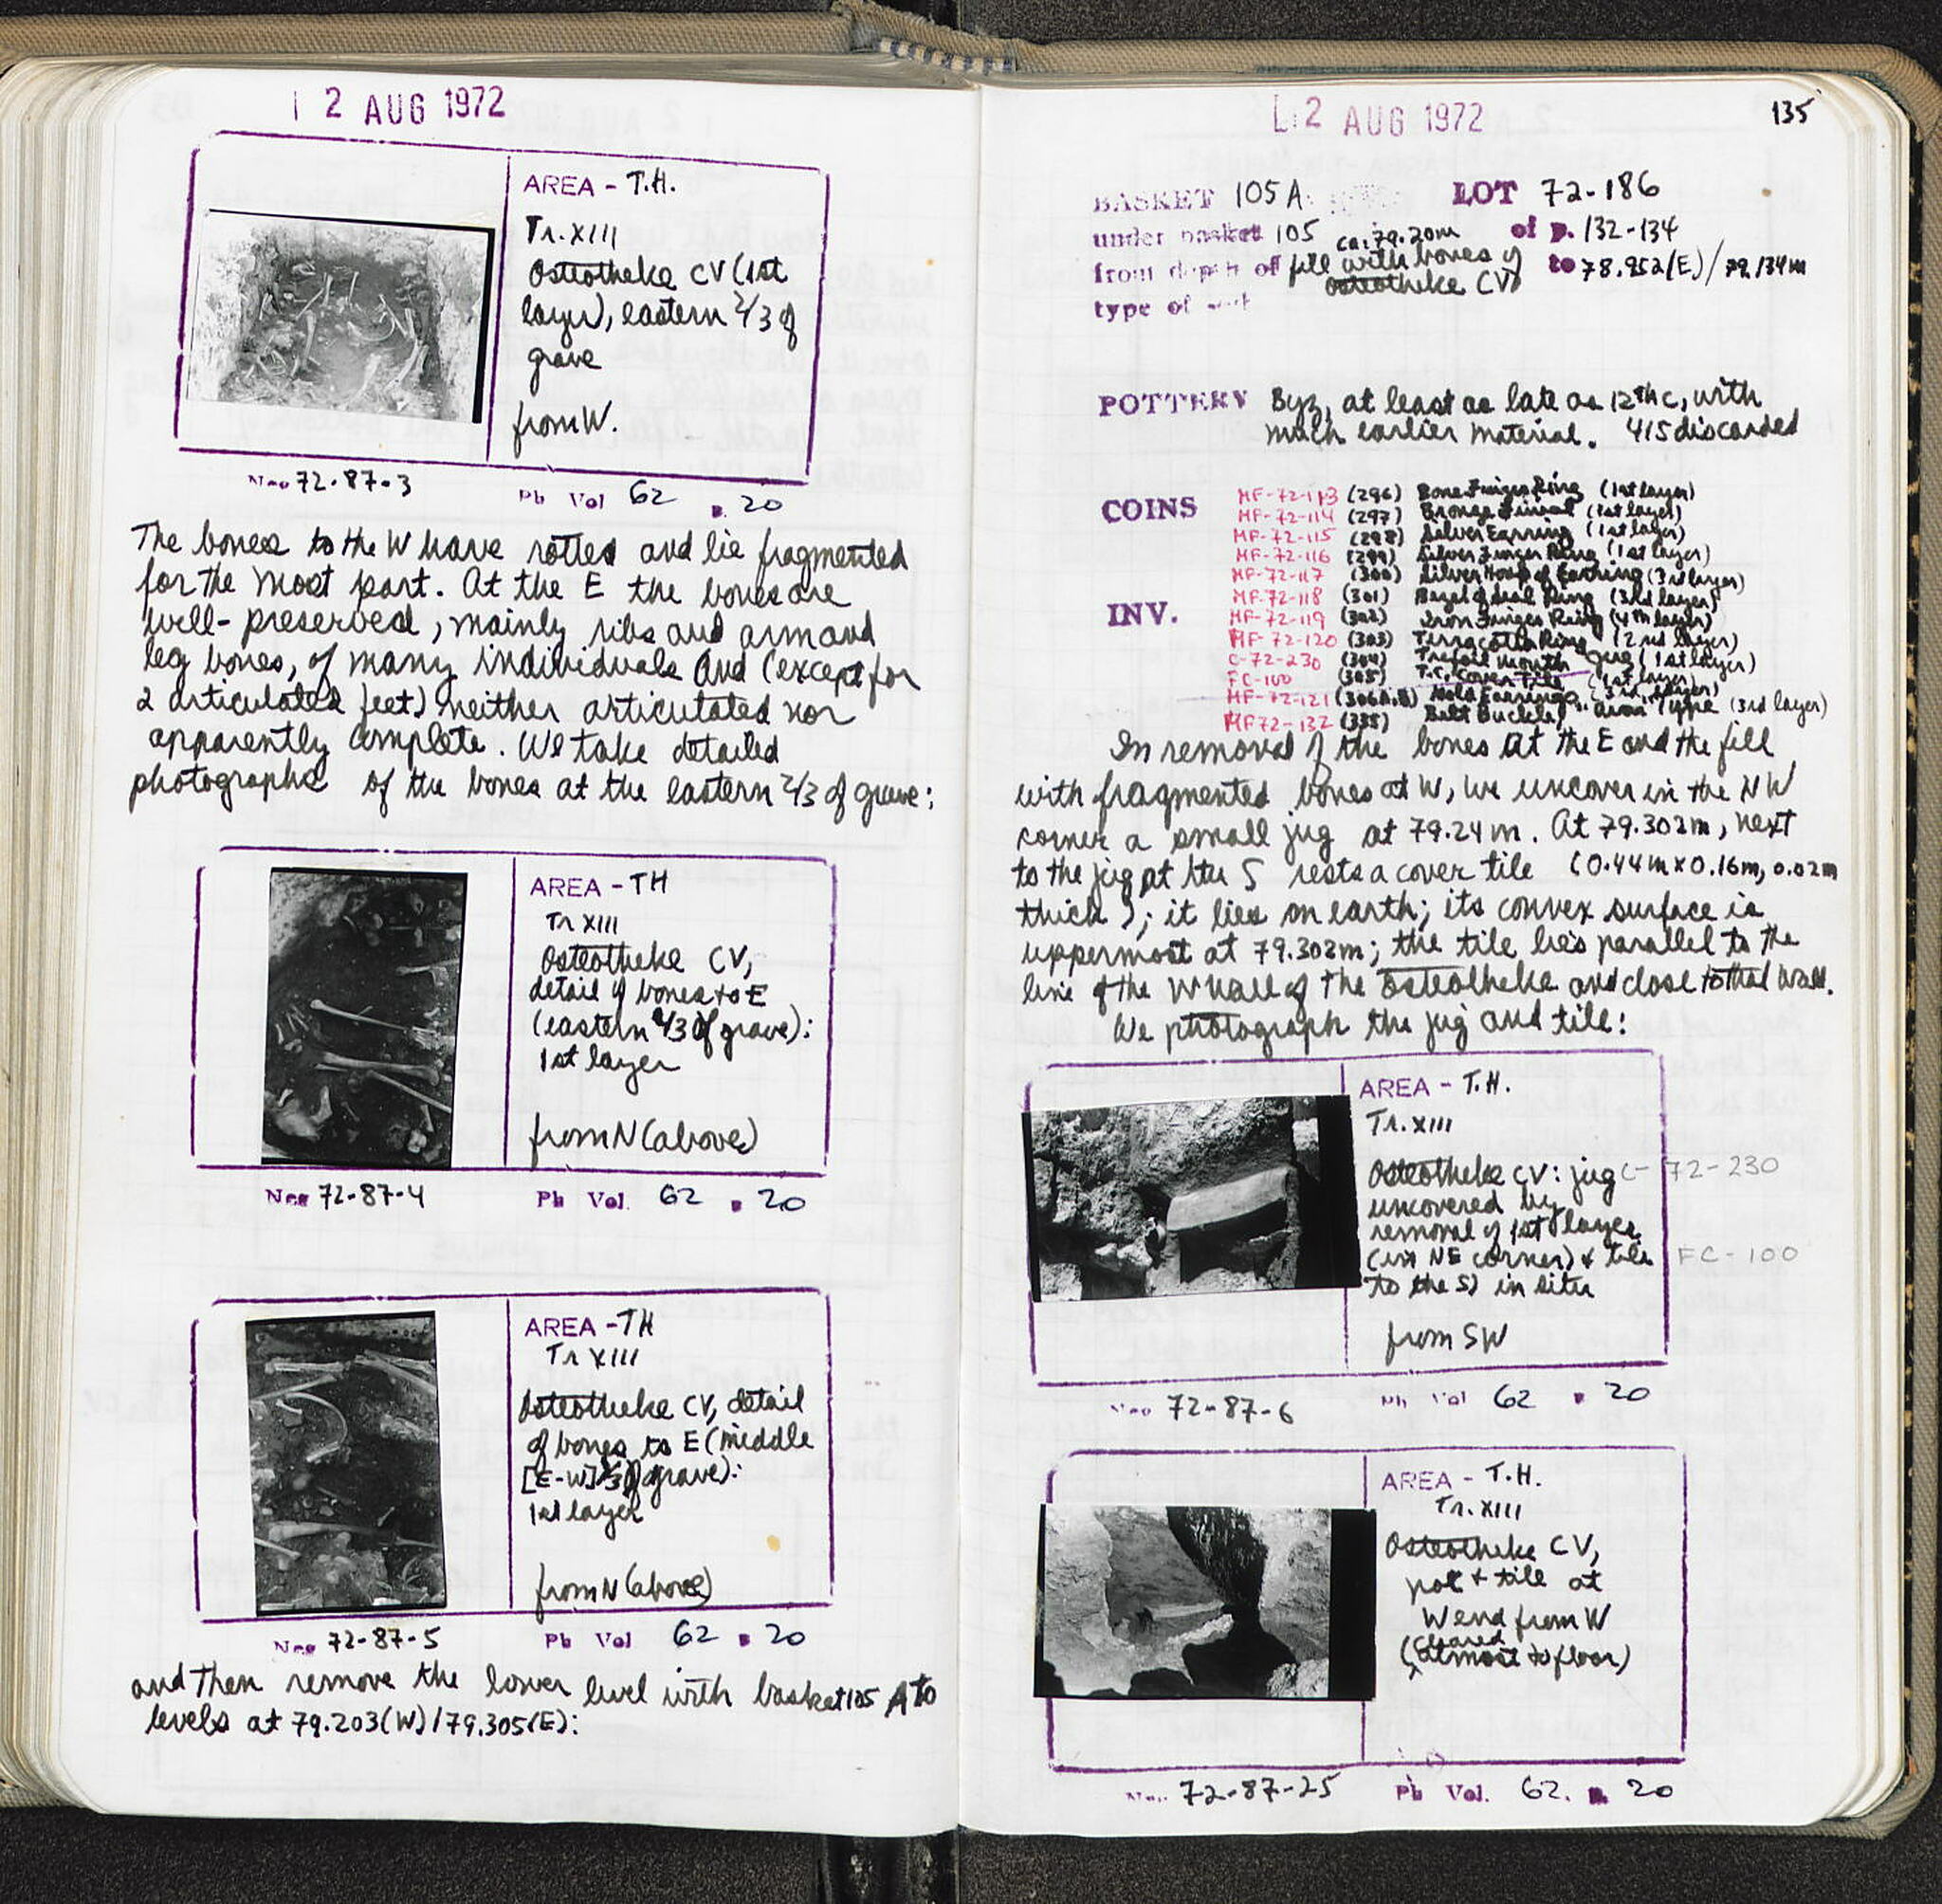 12 AUG 1972
AREA - T.H.
Tr. XIII
Osteotheke CV (1st
layer), eastern 2/3 of
grave
from W.
Neg 72-87-3 Ph Vol 62 p. 20
The bones to the W have rotted and lie fragmented
for the most part. At the E the bones are
well-preserved, mainly ribs and arm and
leg bones, of many individuals and (except for
2 articulated feet) neither articulated nor
apparently complete. We take detailed
photographs of the bones at the eastern 2/3 of grave:
AREA - TH
Tr XIII
Osteotheke CV,
detail of bones to E
(eastern 1/3 of grave):
1st layer
from N (above)
Neg 72-87-4 Ph Vol. 62 p. 20
AREA - TH
Tr XIII
Osteotheke CV, detail
of bones to E (middle
[E-W] 1/3 of grave):
1st layer
from N (above)
Neg 72-87-5 Ph Vol 62 p. 20
and then remove the lower level with basket 105 A to
levels at 79.203(W)/79.305(E):
12 AUG 1972
135
BASKET 105 A LOT 72-186
under basket 105 of p. 132-134
from depth of ca. 79.20m to 78.952(E)/79.134m
type of fill with bones of
Osteotheke CV
POTTERY Byz, at least as late as 12th c, with
much earlier material. 415 discarded
COINS
INV.
MF-72-113 (296) Bone Finger Ring (1st layer)
MF-72-114 (297) Bronze Finial (1st layer)
MF-72-115 (298) Silver Earring (1st layer)
MF-72-116 (299) Silver Finger Ring (1st layer)
MF-72-117 (300) Silver Hoop of Earring (3rd layer)
MF-72-118 (301) Bezel of Seal Ring (3rd layer)
MF-72-119 (302) Iron Finger Ring (4th layer)
MF-72-120 (303) Terracotta Ring (2nd layer)
C-72-230 (304) Trefoil Mouth Jug (1st layer)
FC-100 (305) T.C. Cover Tile (1st layer)
MF-72-121 (306A,B) Gold Earrings, "Avar" Type (3rd layer)
MF72-132 (335) Belt Buckle (3rd layer)
In removal of the bones at the E and the fill
with fragmented bones at W, we uncover in the NW
corner a small jug at 79.24m. At 79.302m, next
to the jug at the S rests a cover tile (0.44m x 0.16m, 0.02m
thick); it lies on earth; its convex surface is
uppermost at 79.302m; the tile lies parallel to the
line of the W wall of the osteotheke and close to that wall.
We photograph the jug and tile:
AREA - T.H.
Tr. XIII
Osteotheke CV: jug C-72-230
uncovered by
removal of 1st layer
(in NE corner) & tile FC-100
to the S) in situ
from SW
Neg 72-87-6 Ph Vol 62 p. 20
AREA - T.H.
Tr. XIII
Osteotheke CV,
pot + tile at
W end from W
(cleared
almost to floor)
Neg. 72-87-25 Ph Vol. 62. p. 20